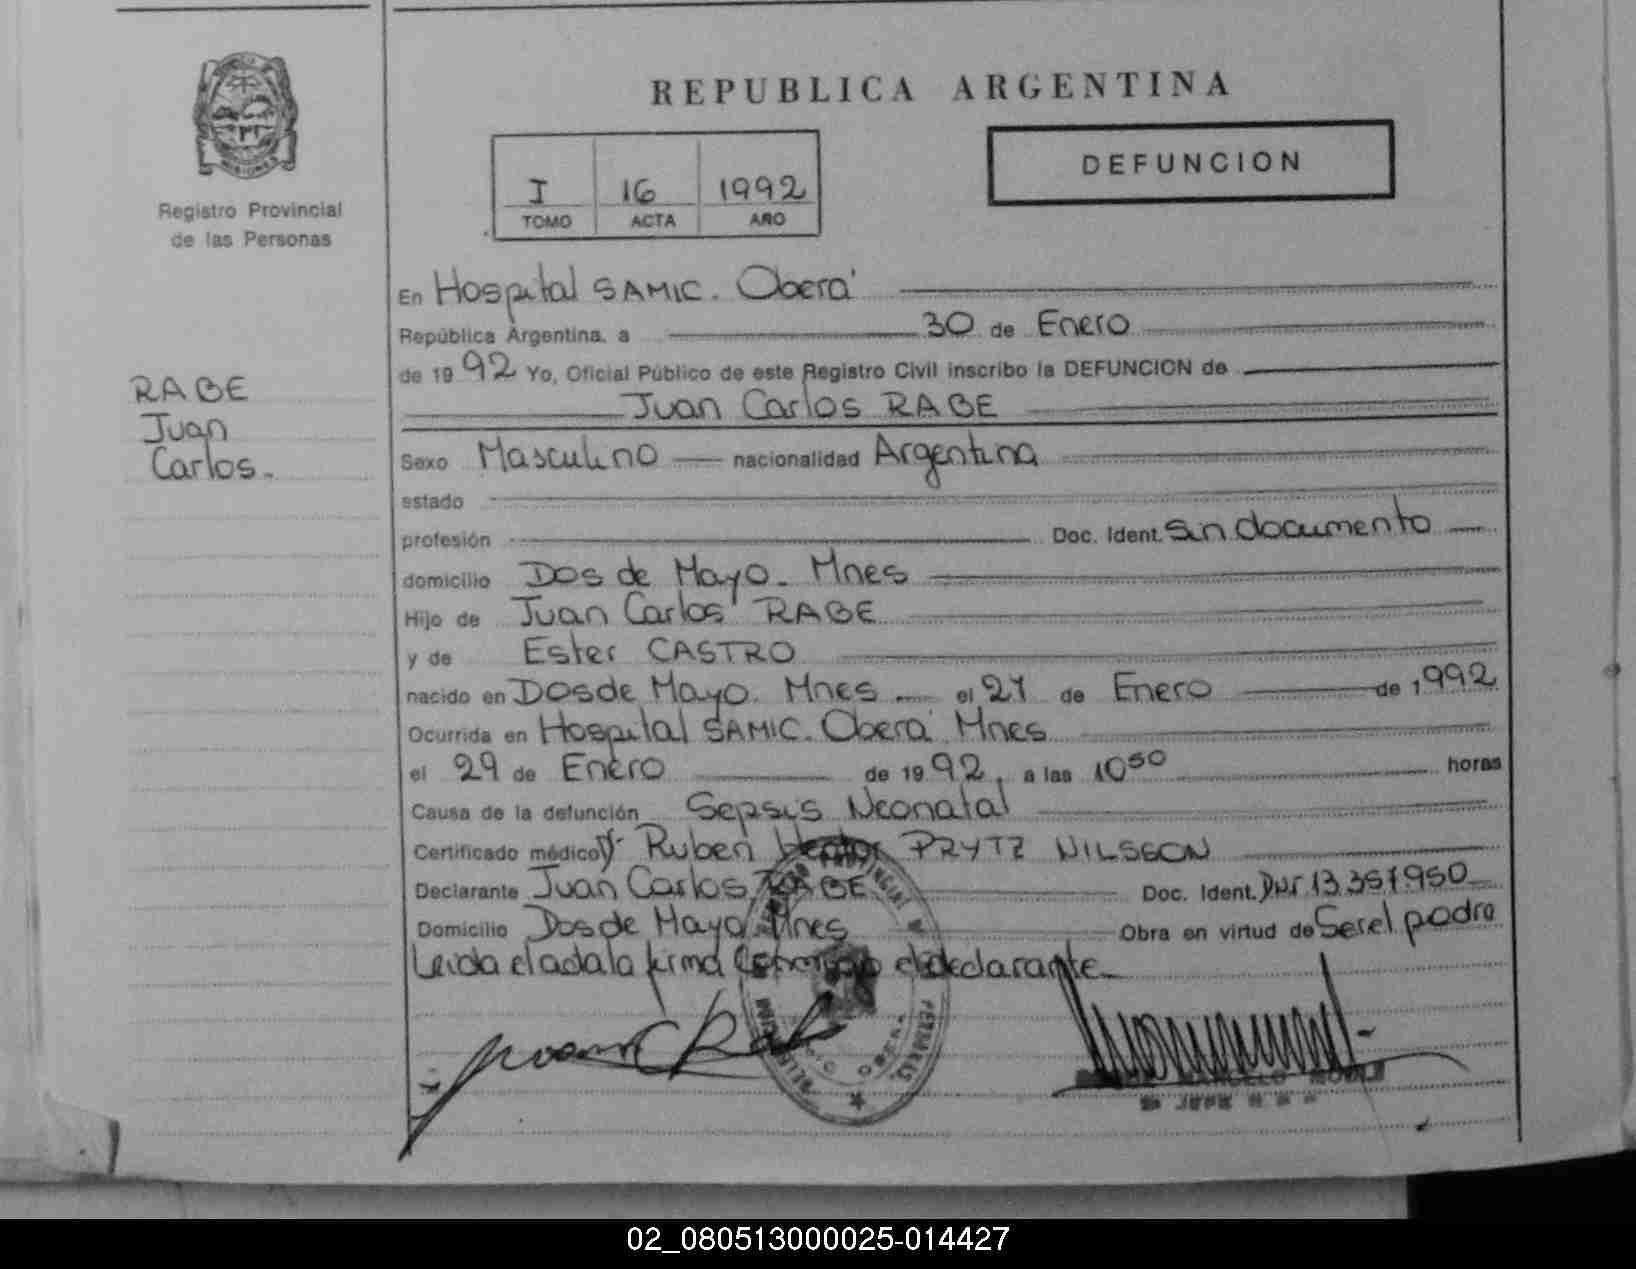 REPUBLICA ARGENTINA
DEFUNCION
I 16 1992
TOMO ACTA AÑO
Registro Provincial
de las Personas
RABE
Juan
Carlos.
En Hospital SAMIC. Oberá
República Argentina, a 30 de Enero
de 1992 Yo, Oficial Público de este Registro Civil inscribo la DEFUNCION de
Juan Carlos RABE
Sexo Masculino nacionalidad Argentina
estado
profesión Doc. Ident. Sin documento
domicilio Dos de Mayo. Mnes
Hijo de Juan Carlos RABE
y de Ester CASTRO
nacido en Dos de Mayo. Mnes el 21 de Enero de 1992
Ocurrida en Hospital SAMIC. Oberá Mnes
el 29 de Enero de 1992, a las 10 50 horas
Causa de la defunción Sepsis Neonatal
Certificado médico Dr Ruben Hector PRYTZ NILSSON
Declarante Juan Carlos RABE Doc. Ident. DNI 13.357.950
Domicilio Dos de Mayo. Mnes Obra en virtud de Ser el padre
Leida el acta la firma el declarante
Juan C Rabe
MARCELO
JEFE
02_080513000025-014427